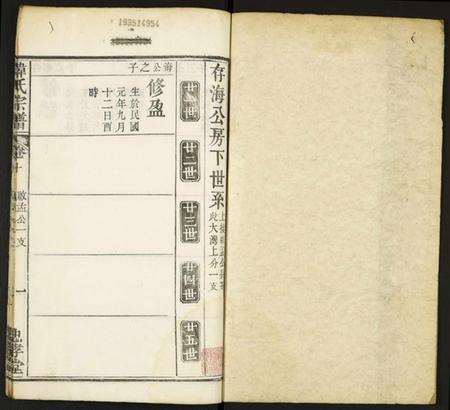 199514954
存海公房下世系
此大灣上分一支
廿一世
廿二世
廿三世
廿四世
廿五世
海公之子
修盈
生於民國
元年九月
十二日酉
時
韓氏宗譜
卷十
啟孟公一支
一